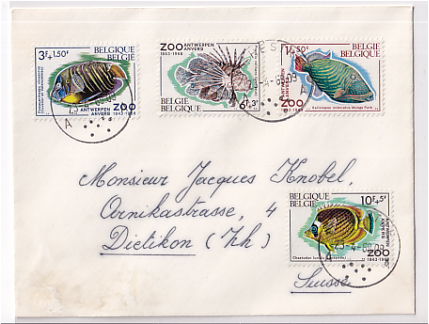 3F+1,50F
BELGIQUE
BELGIË
ANTWERPEN
ANVERS
ZOO
1843-1968
ZOO ANTWERPEN
ANVERS
1843-1968
BELGIE
BELGIQUE
6F+3F
BELGIQUE
BELGIE
ZOO
1843-1968
A
A
Monsieur Jacques Knobel,
Ornikastrasse, 4
Dietikon (Zh)
Suisse
BELGIQUE
BELGIE
10F+5F
ZOO
1843-1968
A
23-4-68